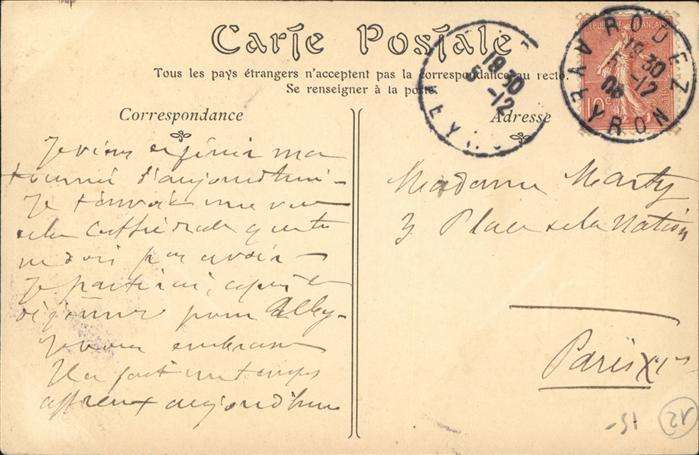 Carte Postale
Tous les pays étrangers n'acceptent pas la correspondance au recto.
Se renseigner à la poste.
Correspondance
Adresse
Je viens de finir ma
tournée d'aujourd'hui -
Je t'envoie une vue
de la Cathédrale que tu
ne dois pas avoir -
Je partirai, après le
déjeuner pour Alby -
Je vous embrasse
Il a fait un temps
affreux aujourd'hui
Madame Marty
3, Place de la Nation
Paris
RODEZ
18 30
5 -12
06
AVEYRON
18 30
5 -12
EY
10
12
15-